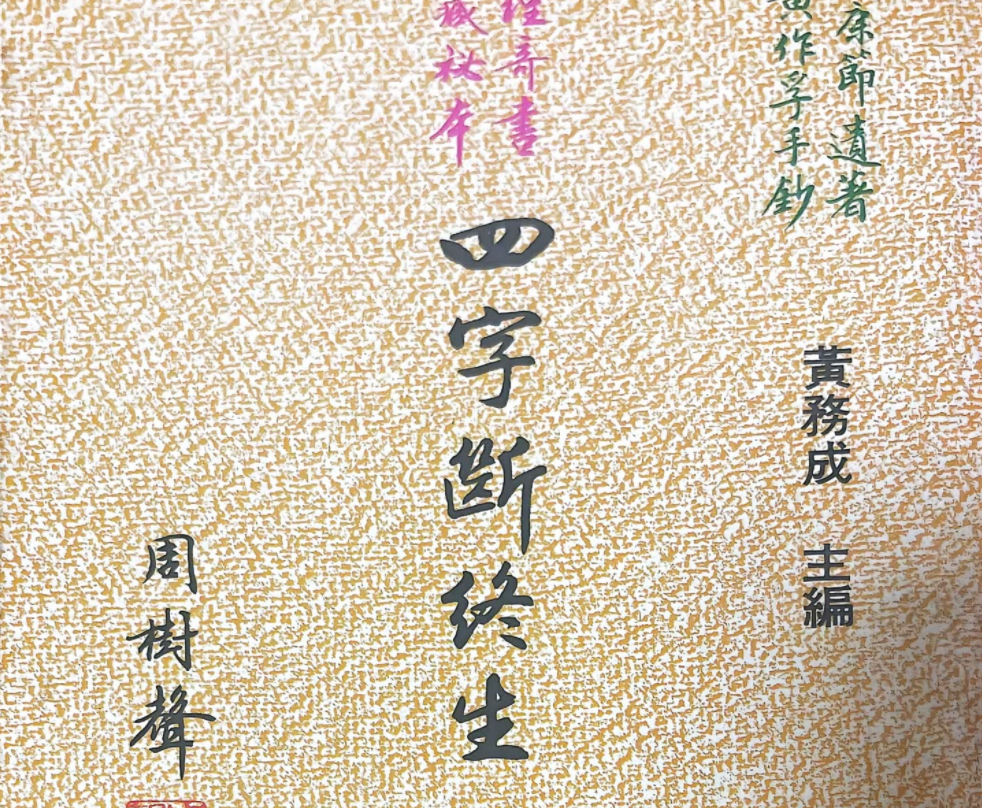 康節遺著
黃作孚手鈔
黃務成 主編
奇書
藏秘本
四字斷終生
周樹聲